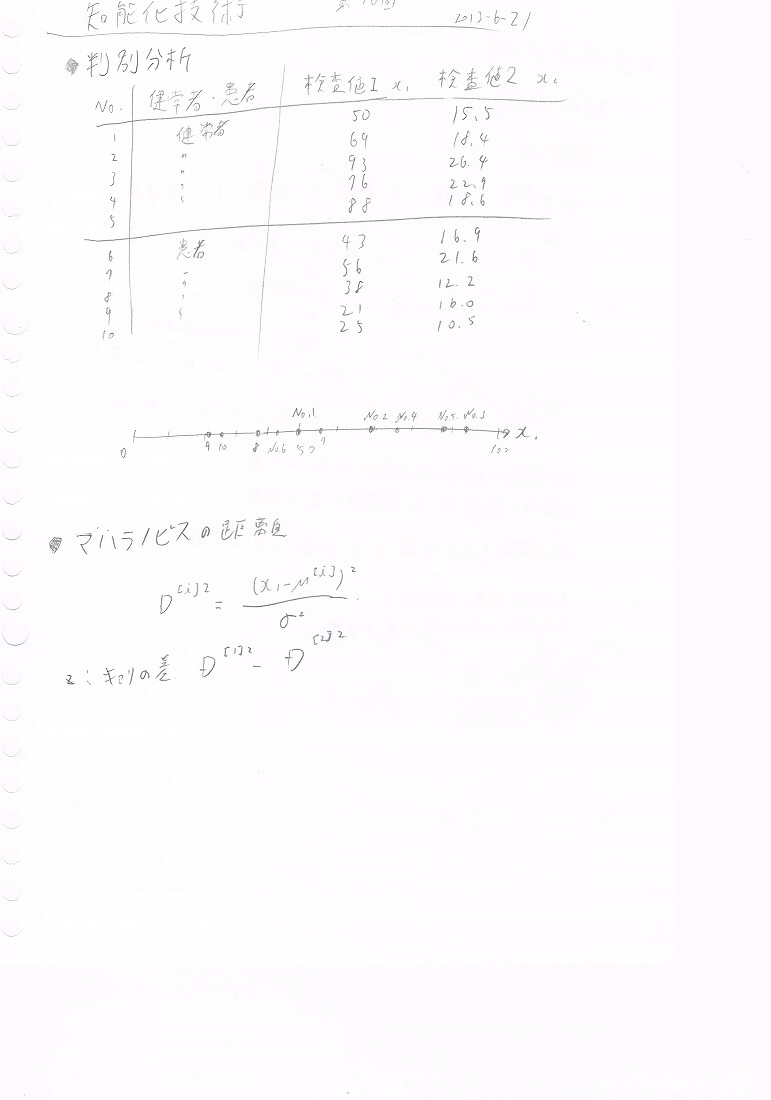 知能化技術 第10回 2013-6-21
判別分析
No. 健常者・患者 検査値1 x₁ 検査値2 x₂
1 健常者 50 15.5
2 〃 69 18.4
3 〃 93 26.4
4 〃 76 22.9
5 〃 88 18.6
6 患者 43 16.9
7 〃 56 21.6
8 〃 38 12.2
9 〃 21 16.0
10 25 10.5
No.1 No.2 No.4 No.5 No.3
0 9 10 8 No.6 50 7 100 x₁
マハラノビスの距離
D^[i]2 = (x₁-μ^[i])² / σ²
z: キョリの差 D^[1]2 - D^[2]2